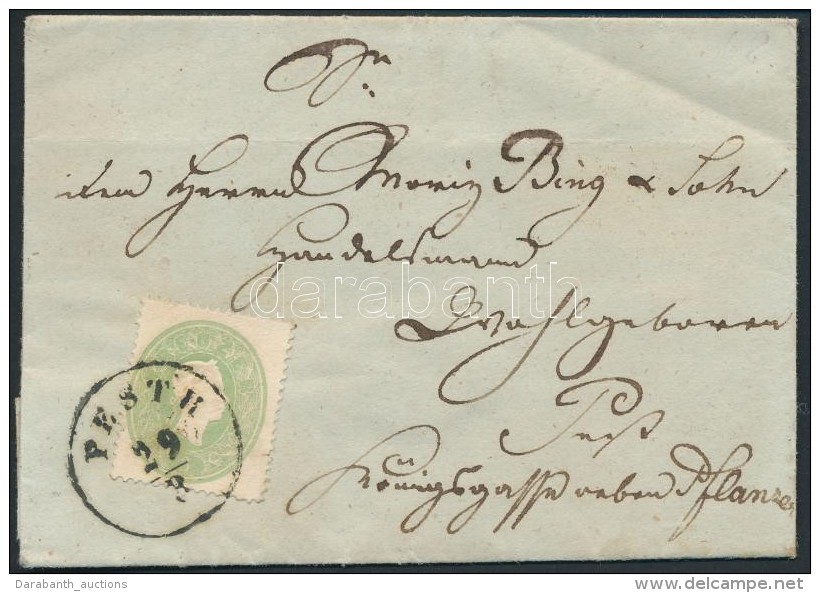 Sr.
Herrn Moriz Bing & Sohn
Handelsmann
Wohlgeboren
Pest
Königsgasse neben Pflanzer
PESTH
29/8
darabanth
Darabanth_auctions
www.delcampe.net